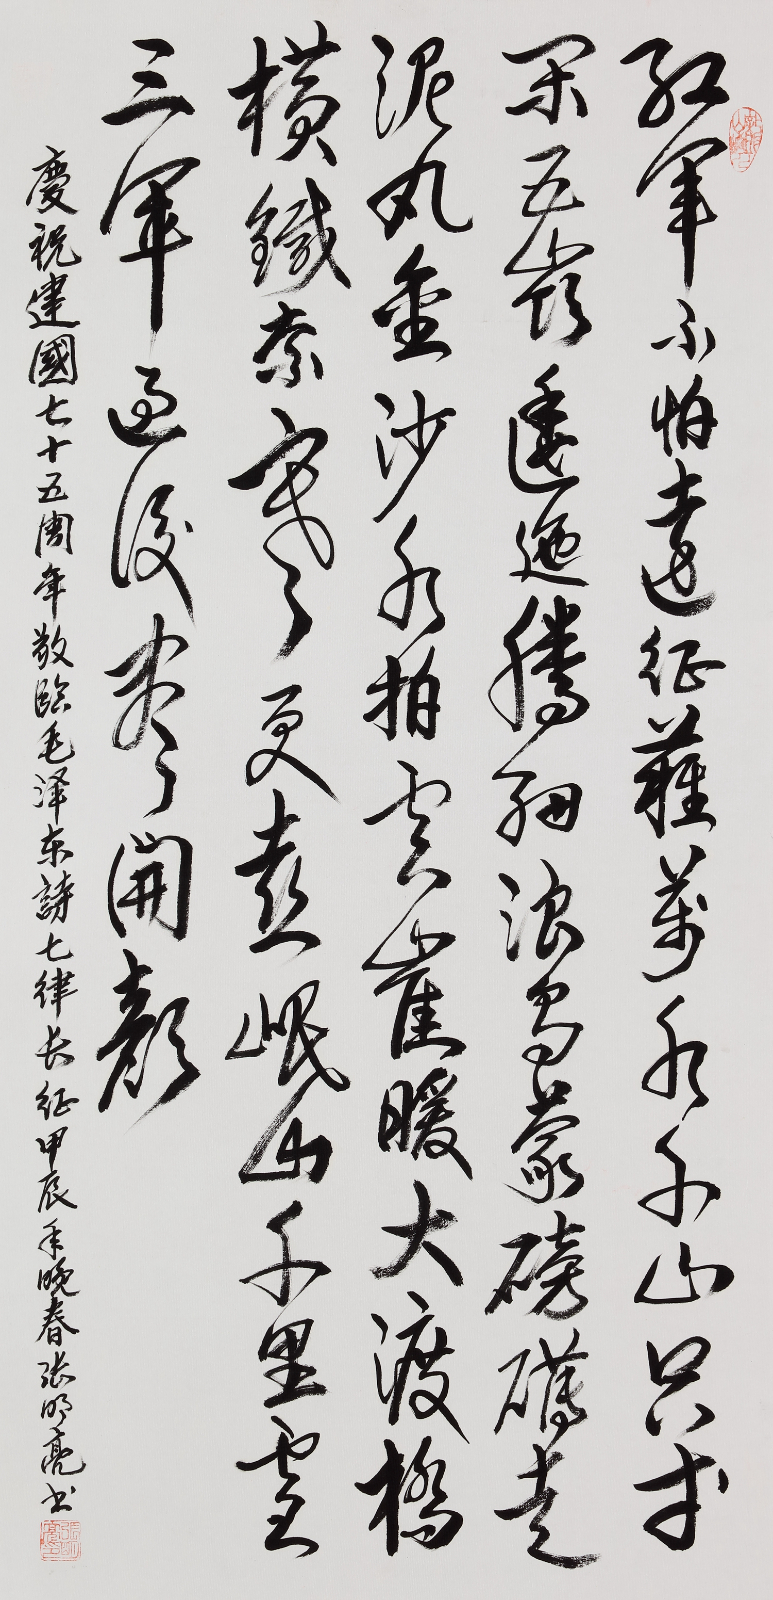 红军不怕遠征難萬水千山只等
闲五嶺逶迤騰細浪烏蒙磅礴走
泥丸金沙水拍雲崖暖大渡橋
横鐵索寒更喜岷山千里雪
三軍過後盡開顏
慶祝建國七十五周年敬臨毛泽东詩七律长征甲辰年晚春张明亮书